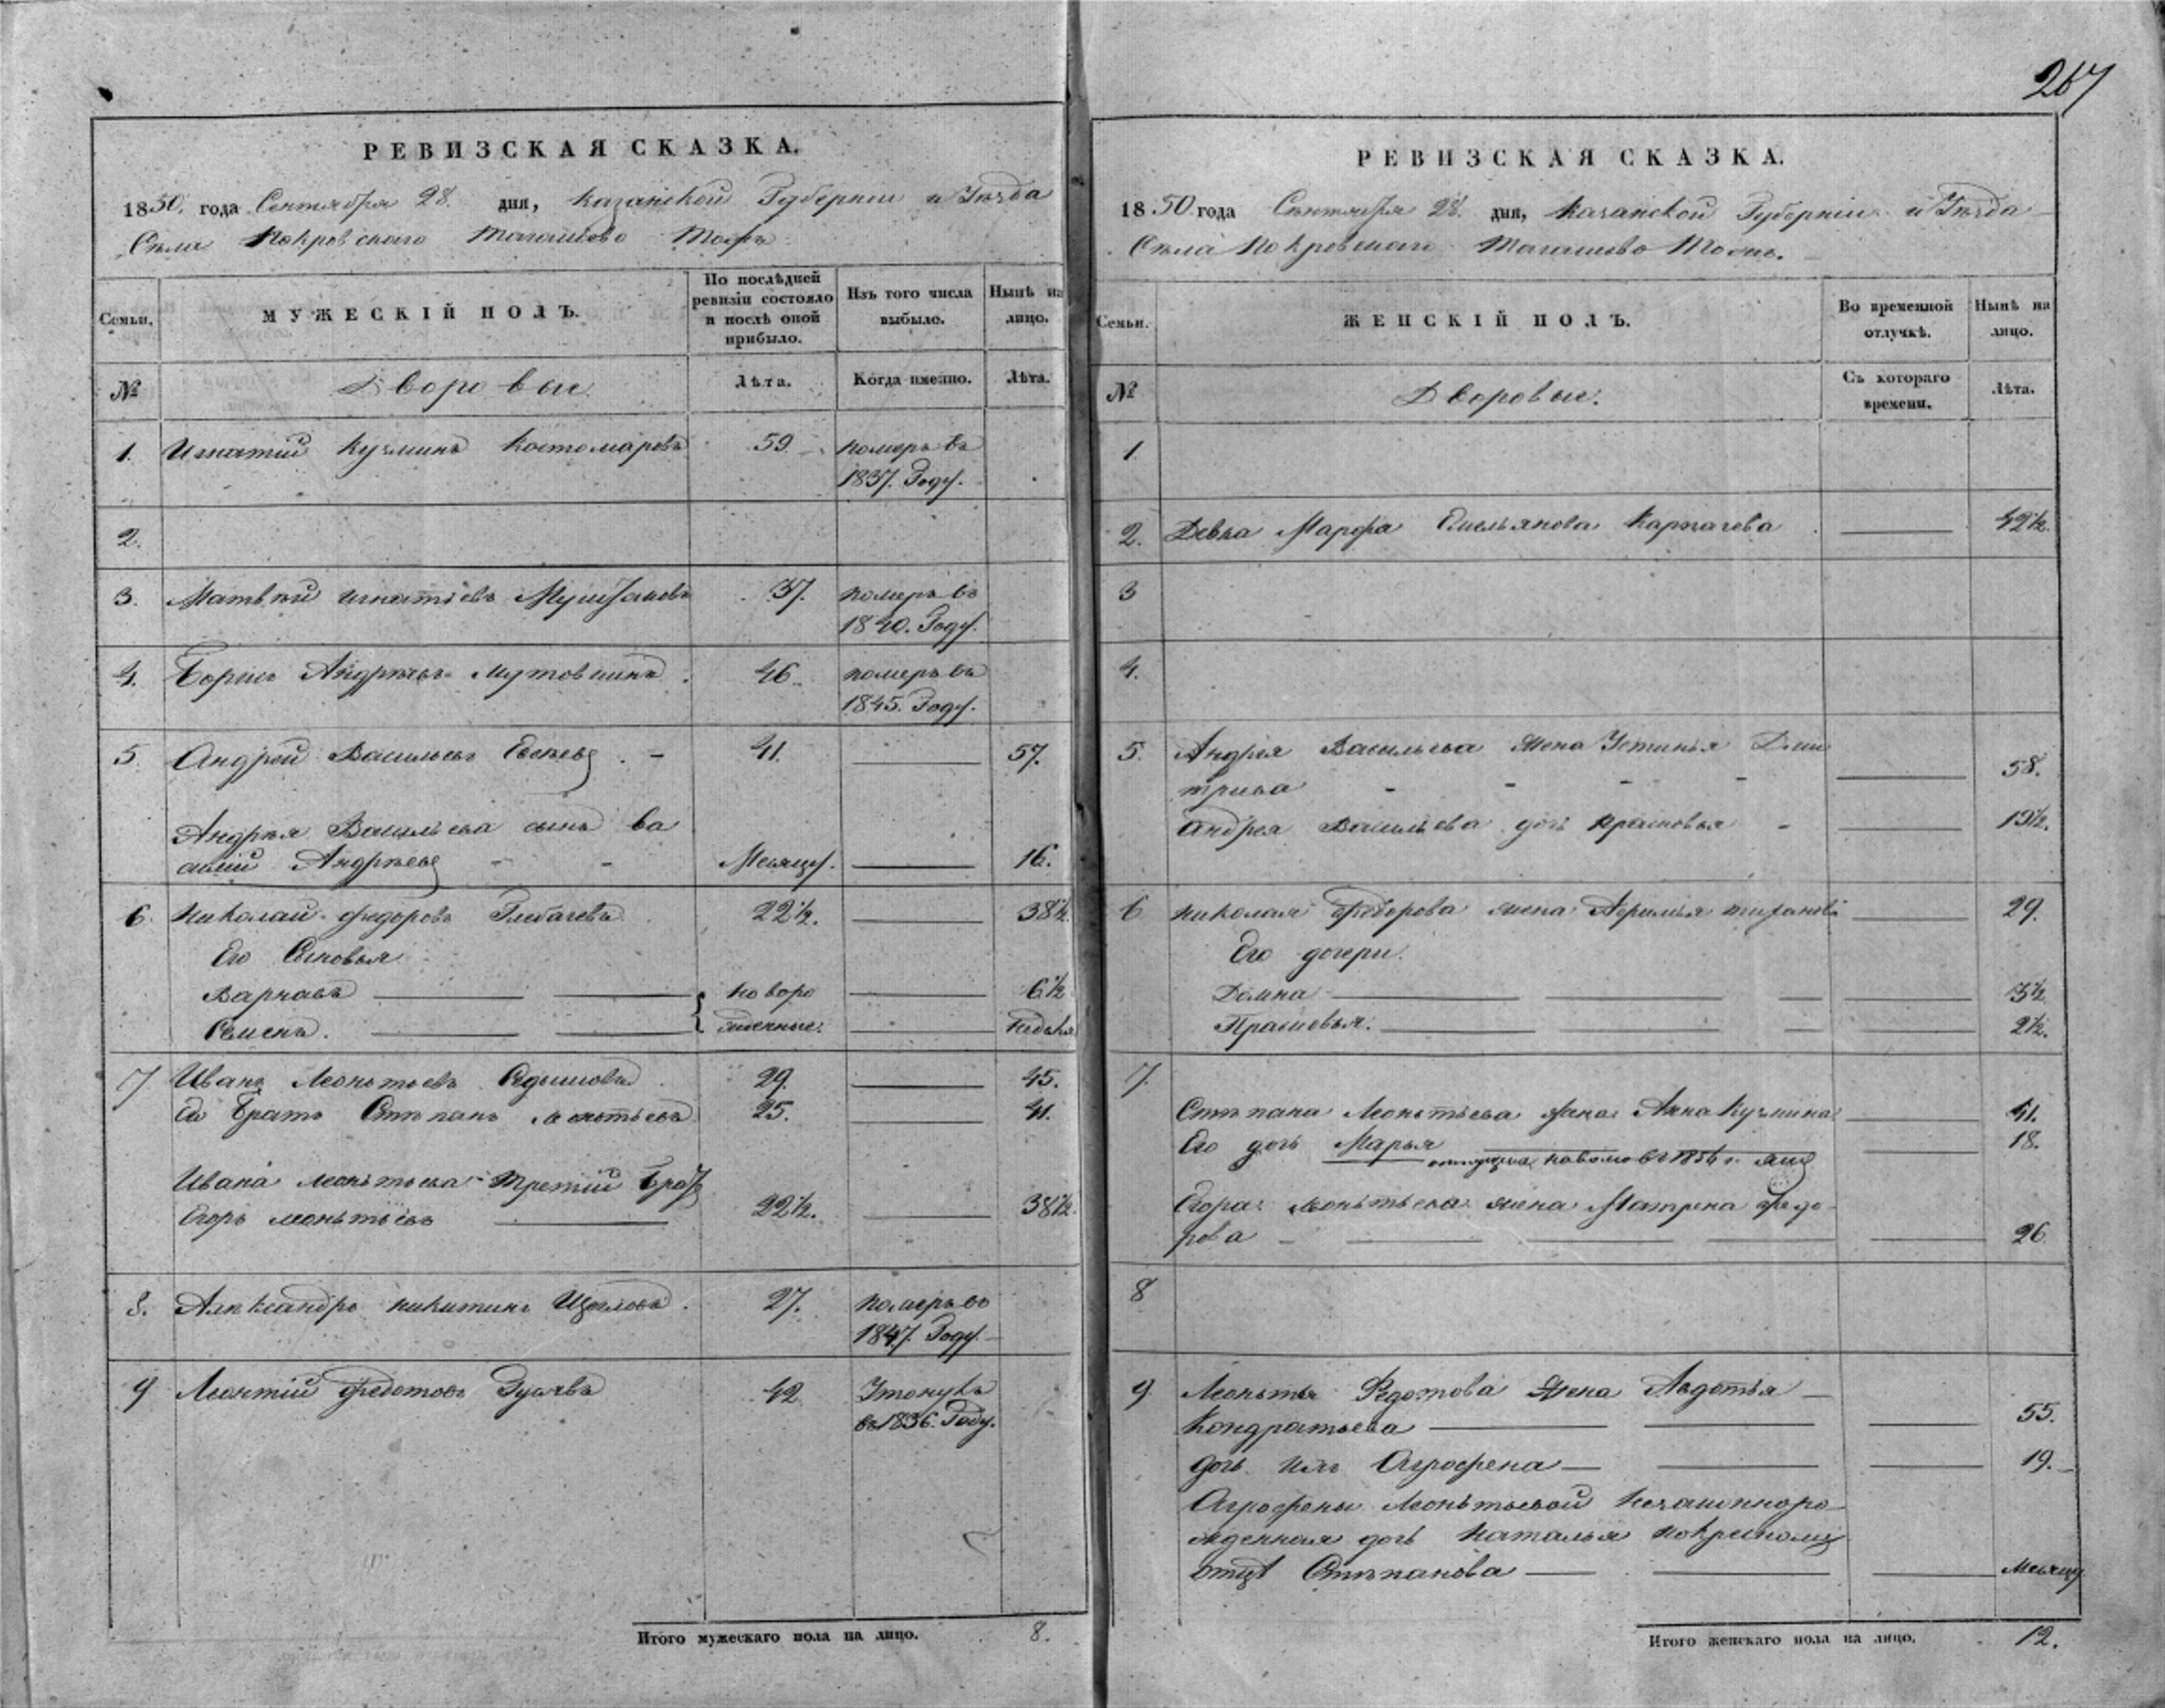 267
РЕВИЗСКАЯ СКАЗКА.
1850. года Сентября 28. дня, Казанской Губернiи и Уѣзда
Села Покровскаго Тагашево Тожъ
Семьи.
МУЖЕСКІЙ ПОЛЪ.
По послѣдней ревизіи состояло и послѣ оной прибыло.
Изъ того числа выбыло.
Нынѣ на лицо.
№
Дворовые
Лѣта.
Когда именно.
Лѣта.
1. Игнатій Кузминъ Костомаровъ 59 померъ въ
1837. Году.
2.
3. Матвѣй Игнатіевъ 37. померъ въ
1840. Году.
4. Борисъ Андрѣевъ Мутовкинъ 46 померъ въ
1845. Году.
5. Андрей Васильевъ 41. 57.
Андрѣя Васильева сынъ Ва
силій Андрѣевъ Месяцъ. 16.
6. Николай Федоровъ 22½. 38½
Его Сыновья
Варнавъ ново ро 6½
Семенъ. жденные. Недѣля
7 Иванъ Леонтьевъ 29. 45.
Ево Братъ Степанъ Леонтьевъ 25. 41.
Ивана Леонтьева третій Братъ
Егоръ Леонтьевъ 22½. 38½.
8. Александръ Никитинъ Щегловъ. 27. померъ въ
1847. Году
9 Леонтій Федотовъ 42 Утонулъ
въ 1836. Году.
Итого мужескаго пола на лицо. 8.
РЕВИЗСКАЯ СКАЗКА.
1850 года Сентября 28. дня, Казанской Губерніи и Уѣзда
Села Покровскаго Тагашево Тожъ.
Семьи.
ЖЕНСКІЙ ПОЛЪ.
Во временной отлучкѣ.
Нынѣ на лицо.
№
Дворовые.
Съ котораго времени.
Лѣта.
1
2. Девка Марфа Емельянова Карпачева 42½.
3
4.
5. Андрея Васильева жена Устинья Дми
трива 58.
Андрея Васильева дочь Прасковья 19½.
6 Николая Федорова жена 29.
Его дочери.
Домна 3½
Прасковья. 2½.
7.
Степана Леонтьева жена Анна Кузмина 41.
Его дочь Марья 18.
отпущена на волю въ 1854 г.
Егора Леонтьева жена Матрена Федо
рова 26
8
9 Леонтья Федотова жена Авдотья
Кондратьева 55.
дочь ихъ Агрофена 19.
Агрофены Леонтьевой незаконноро
жденная дочь Наталья по крестному
отцу Степанова Месяцъ
Итого женскаго пола на лицо. 12.